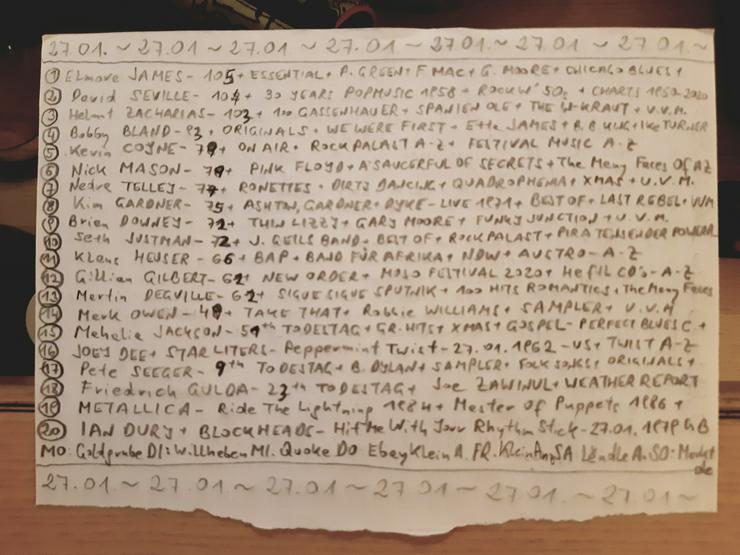 27.01. ~ 27.01 ~ 27.01. ~ 27.01 ~ 27.01 ~ 27.01 ~ 27.01 ~
① Elmore JAMES - 105 + ESSENTIAL + P. GREEN + F MAC + G. MOORE + CHICAGO BLUES +
② David SEVILLE - 104 + 30 YEARS POPMUSIC 1958 + ROCK'N' 50s + CHARTS 1950-2020
③ Helmut ZACHARIAS - 103 + 100 GASSENHAUER + SPANIEN OLE + THE W-KRAUT + U.V.M.
④ Bobby BLAND - 93 + ORIGINALS + WE WERE FIRST + Etta JAMES + B.B KING + Ike TURNER
⑤ Kevin COYNE - 79 + ON AIR + ROCKPALAST A-Z + FESTIVAL MUSIC A-Z
⑥ Nick MASON - 79 + PINK FLOYD + A SAUCERFUL OF SECRETS + The Many Faces OF AZ
⑦ Nedra TELLEY - 77 + RONETTES + DIRTY DANCING + QUADROPHENIA + XMAS + U.V.M.
⑧ Kim GARDNER - 75 + ASHTON, GARDNER + DYKE - LIVE 1971 + BEST OF + LAST REBEL + UVM
⑨ Brian DOWNEY - 72 + THIN LIZZY + GARY MOORE + FUNKY JUNCTION + U.V.M.
⑩ Seth JUSTMAN - 72 + J. GEILS BAND + BEST OF + ROCKPALAST + PIRATENSENDER POWERPL
⑪ Klaus HEUSER - 66 + BAP + BAND FÜR AFRIKA + NDW + AUSTRO - A-Z
⑫ Gillian GILBERT - 62 + NEW ORDER + FESTIVAL 2020 + A-Z
⑬ Martin DEGVILLE - 62 + SIGUE SIGUE SPUTNIK + 100 HITS ROMANTICS + The Many Faces
⑭ Mark OWEN - 49 + TAKE THAT + Robbie WILLIAMS + SAMPLER + U.V.M
⑮ Mahalia JACKSON - 51th TODESTAG + GR. HITS + XMAS + GOSPEL - PERFECT BLUES C +
⑯ JOEY DEE + STARLITERS - Peppermint Twist - 27.01.1962 - US + TWIST A-Z
⑰ Pete SEEGER - 9th TODESTAG + B. DYLAN + SAMPLER + FOLK SONGS + ORIGINALS +
⑱ Friedrich GULDA - 23th TODESTAG + Joe ZAWINUL + WEATHER REPORT
⑲ METALLICA - Ride The Lightning 1984 + Master Of Puppets 1986 +
⑳ IAN DURY + BLOCKHEADS - Hit Me With Your Rhythm Stick - 27.01.1979 GB
MO: Goldgrube DI: Willhaben MI. Quoka DO Ebay Klein A. FR. Klein Anz SA Ländle An SO - Markt
de
27.01. ~ 27.01 ~ 27.01 ~ 27.01 ~ 27.01 ~ 27.01 ~ 27.01 ~